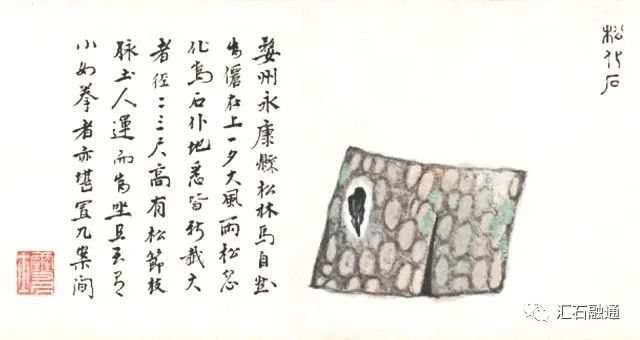 松化石
婺州永康縣松林馬自然
為僊在上一夕大風雨松忽
化為石仆地悉皆斷截大
者徑二三尺高有松節枝
脉土人運而為坐具至有
小如拳者亦堪置几案間
汇石融通